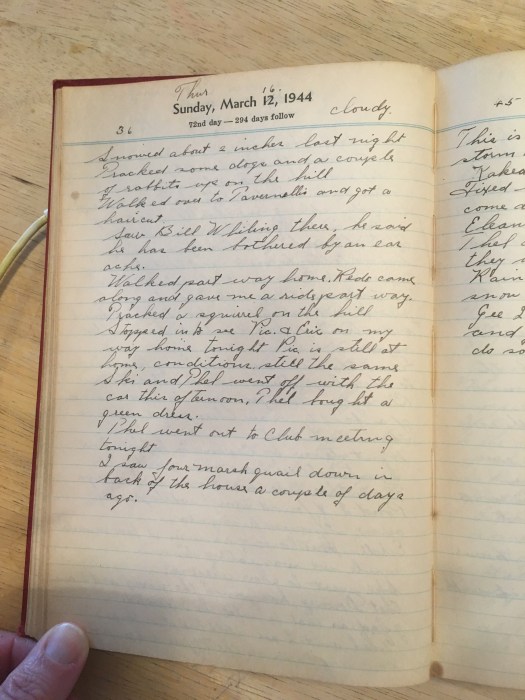 Thur 16.
Sunday, March 12, 1944
72nd day — 294 days follow
36
cloudy.
Snowed about 2 inches last night
Tracked some dogs and a couple
of rabbits up on the hill
Walked over to Tavernellis and got a
haircut
Saw Bill Whiting there, he said
he has been bothered by an ear
ache.
Walked part way home. came
along and gave me a ride part way.
Tracked a squirrel on the hill
Stopped in to see Pic. & Eric on my
way home tonight Pic is still at
home, conditions still the same
Ski and Phel went off with the
car this afternoon, Phel bought a
green dress.
Phel went out to Club meeting
tonight
I saw four marsh quail down in
back of the house a couple of days
ago.
45
This is
storm
Fixed
come a
Phel
they
Rain
snow
Gee I
and
do so